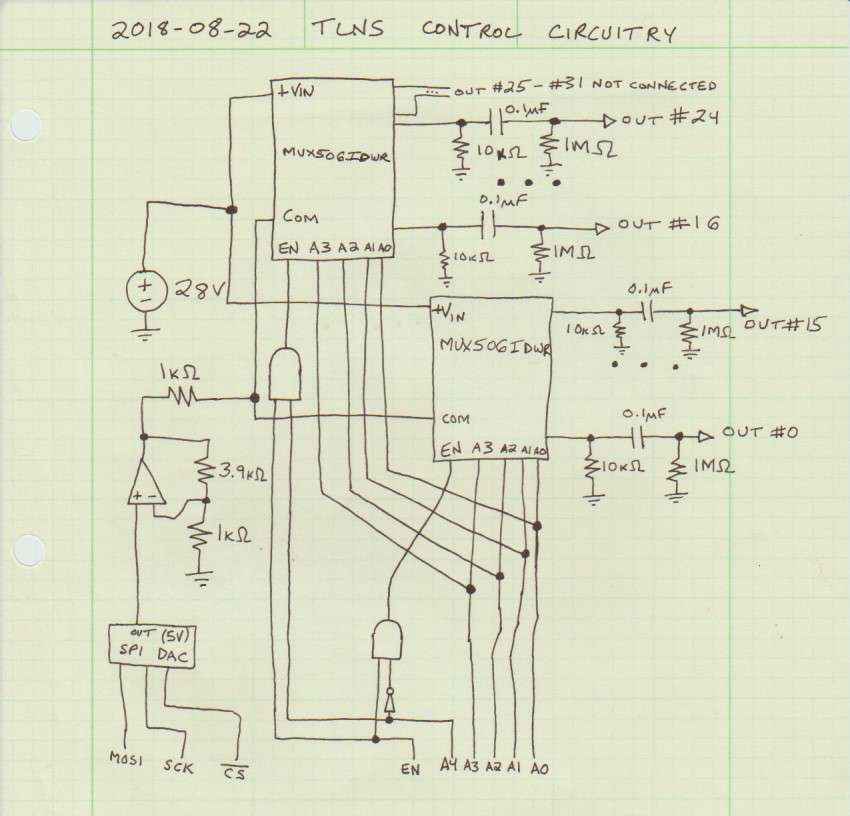 2018-08-22 TLNS CONTROL CIRCUITRY
+VIN
OUT #25 - #31 NOT CONNECTED
0.1µF
OUT #24
MUX506IDWR
10kΩ
1MΩ
0.1µF
COM
OUT #16
EN A3 A2 A1 A0
10kΩ
1MΩ
28V
+
-
0.1µF
+VIN
10kΩ
1MΩ
OUT #15
MUX506IDWR
1kΩ
0.1µF
COM
OUT #0
EN A3 A2 A1 A0
10kΩ
1MΩ
3.9kΩ
+ -
1kΩ
OUT (5V)
SPI DAC
MOSI SCK CS
EN A4 A3 A2 A1 A0